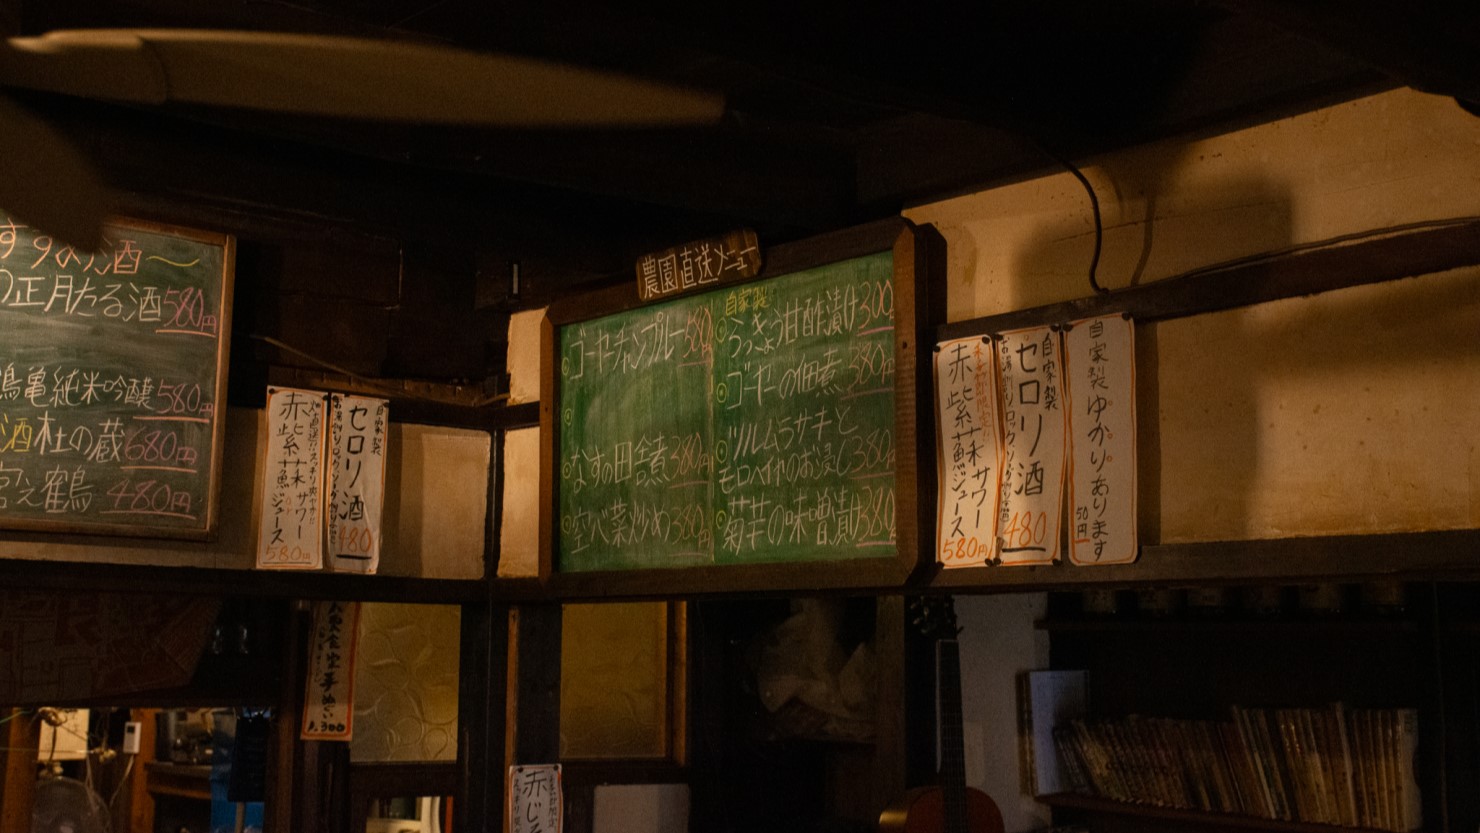 すすめ酒〜
の正月たる酒580円
亀純米吟醸580円
酒杜の蔵680円
鶴480円
赤紫蘇サワー
ジュース
580円
自家製
セロリ酒
480
農園直送メニュー
ゴーヤーチャンプルー580円
なすの田舎煮380円
空心菜炒め380円
自家製
らっきょう甘酢漬け300
ゴーヤーの佃煮380円
ツルムラサキと
モロヘイヤのお浸し380
菊芋の味噌漬け380
赤紫蘇サワー
ジュース
580円
自家製
セロリ酒
お湯割り、ロック、ソーダ割り
480
自家製ゆかりあります
50円
1,300
赤じそ